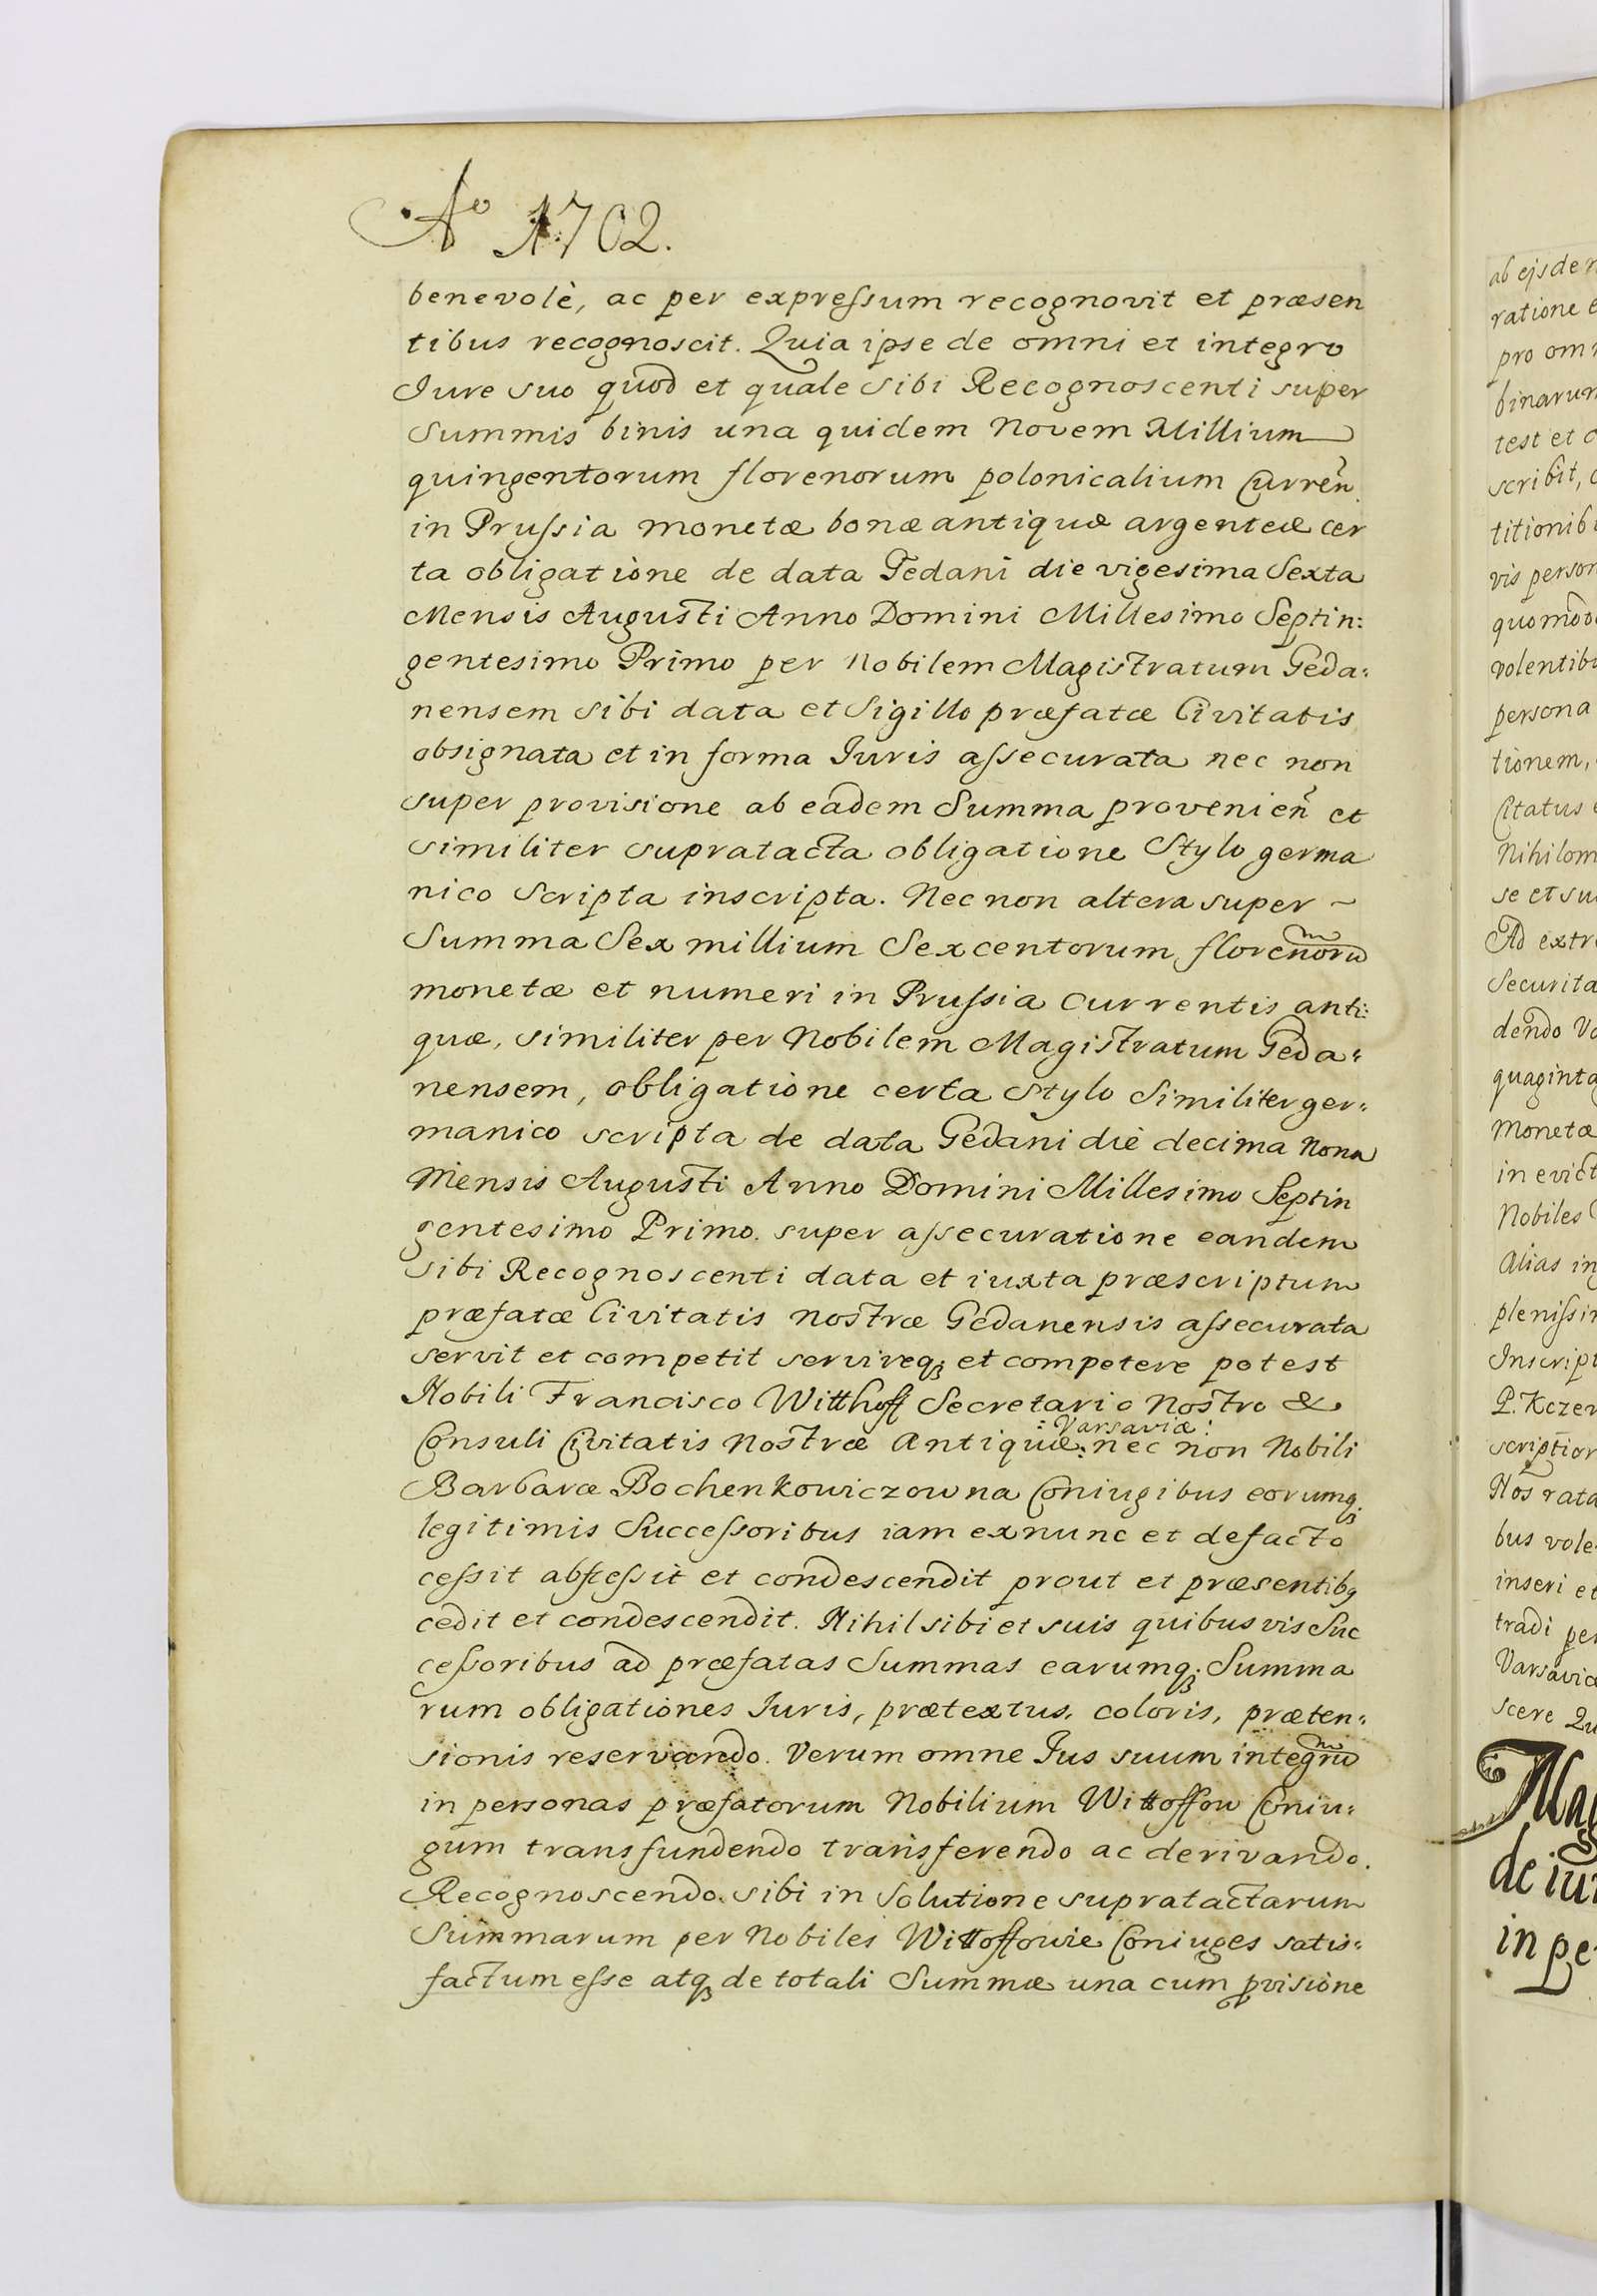 Aº 1702.
benevolè, ac per expressum recognovit et præsen
tibus recognoscit. Quia ipse de omni et integro
Iure suo quod et quale sibi Recognoscenti super
Summis binis una quidem Novem Millium
quingentorum florenorum polonicalium Curren̄
in Prussia monetæ bonæ antiquæ argenteæ cer
ta obligatione de data Gedani die vigesima Sexta
Mensis Augusti Anno Domini Millesimo Septin:
gentesimo Primo per Nobilem Magistratum Geda:
nensem sibi data et Sigillo præfatæ Civitatis
obsignata et in forma Iuris assecurata nec non
super provisione ab eadem Summa provenien̄ et
similiter supratacta obligatione Stylo germa
nico Scripta inscripta. Nec non altera super ~
Summa Sex millium Sexcentorum florenorū
monetæ et numeri in Prussia currentis anti:
quæ, similiter per Nobilem Magistratum Geda:
nensem, obligatione certa Stylo Similiter ger:
manico scripta de data Gedani die decima Nona
Mensis Augusti Anno Domini Millesimo Septin
gentesimo Primo. super assecuratione eandem
sibi Recognoscenti data et iuxta præscriptum
præfatæ Civitatis nostræ Gedanensis assecurata
servit et competit servireq₃ et competere potest
Nobili Francisco Witthoff Secretario Nostro &
: Varsaviæ :
Consuli Civitatis Nostræ Antiquæ: nec non Nobili
Barbaræ Bochenkowiczowna Coniugibus eorumq₃
legitimis Successoribus iam exnunc et defacto
cessit abscessit et condescendit prout et præsentibq
cedit et condescendit. Nihil sibi et suis quibusvis Suc
cessoribus ad præfatas Summas earumq₃ Summa
rum obligationes Iuris, prætextus, coloris, præten:
sionis reservando. Verum omne Ius suum integrū
in personas præfatorum Nobilium Wittoffow Coniu:
gum transfundendo transferendo ac derivando.
Recognoscendo sibi in Solutione supratactarum
Summarum per Nobiles Wittoffowie Coniuges satis:
factum esse atq₃ de totali Summæ una cum pvisione
ab ejsdem
ratione e
pro om
binarum
test et
scribit,
titionib
vis person
quomodo
volentib
persona
tionem,
Citatus
Nihilom
se et su
Ad extr
Securita
dendo Va
quaginta
Monetæ
in evict
Nobiles
Alias in
plenissi
Inscript
P. Kczer
scription
Nos rata
bus vole
inseri et
tradi per
Varsaviæ
scere Qu
Mag
de iu
in pe